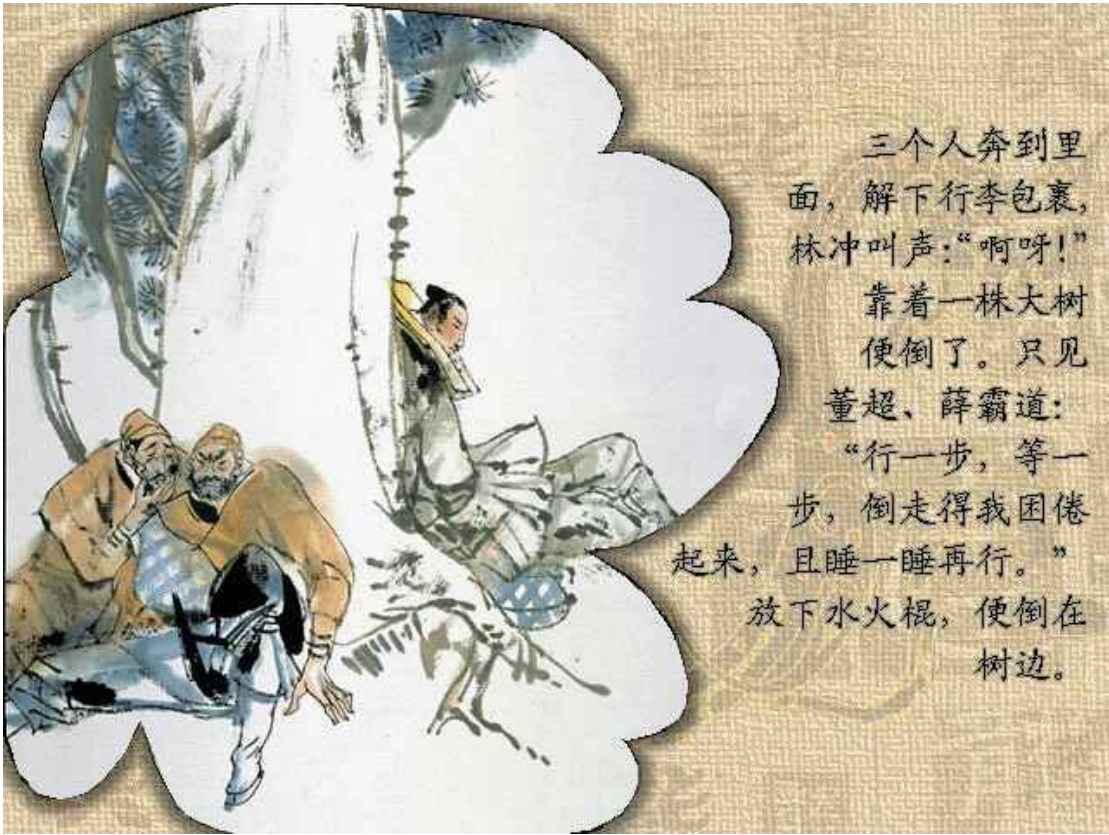 三个人奔到里
面，解下行李包裹，
林冲叫声:“啊呀!”
靠着一株大树
便倒了。只见
董超、薛霸道:
“行一步，等一
步，倒走得我困倦
起来，且睡一睡再行。”
放下水火棍，便倒在
树边。